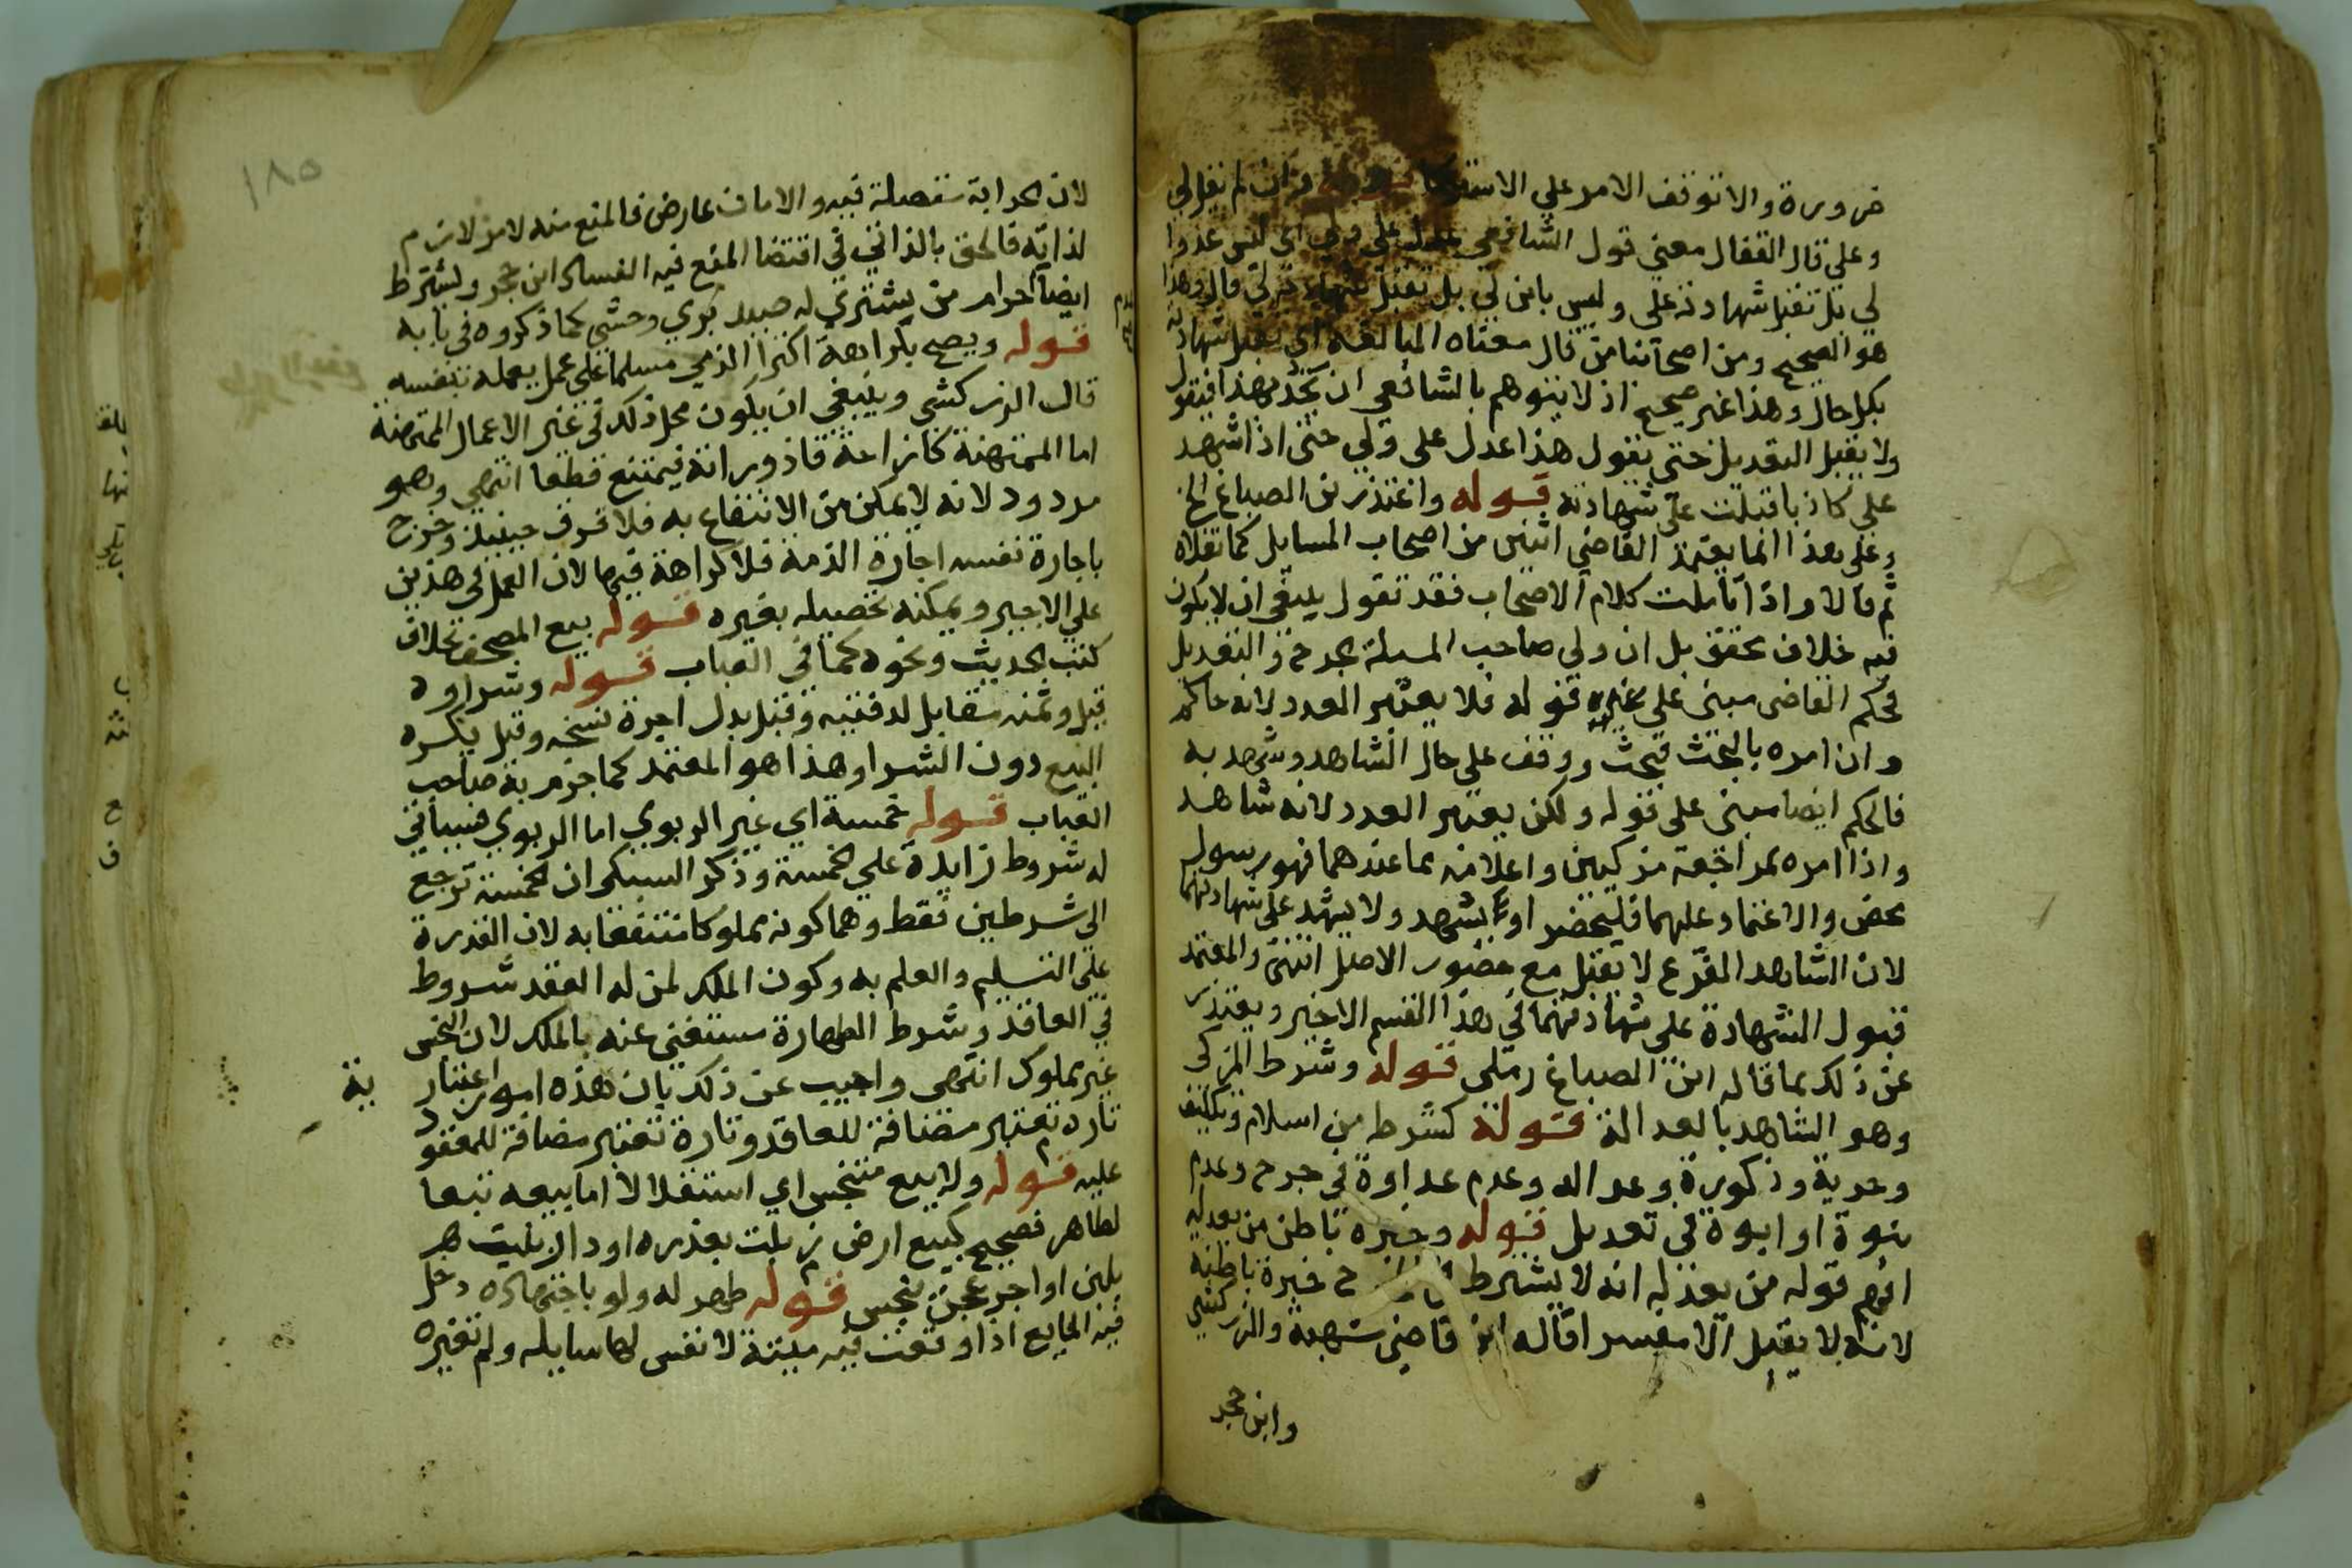 ضرورة والا توقف الامر علي الاستفر وان لم يقل لي
وعلي قال القفال معني قول الشافعي علي ولي اي ليس عدوا
لي بل تقبل شهادته علي وليس بابن لي بل تقبل شهادته لي قال وهذا
هو الصحيح ومن اصحابنا من قال معناه المبالغة اي يقبل شهادته
بكل حال وهذا غير صحيح اذ لا يتوهم بالشافعي ان بهذا فيقول
ولا يقبل التعديل حتي يقول هذا عدل علي ولي حتي اذا شهد
علي كاذبا قبلت علي شهادته قوله واعتذر بن الصباغ الخ
وعلي هذا انما يعتمد القاضي اثنين من اصحاب المسايل كما نقلاه
ثم قالا واذا تاملت كلام الاصحاب فقد تقول ينبغي ان لا يكون
فيه خلاف محقق بل ان ولي صاحب المسلة الجرح والتعديل
فحكم القاضي مبني علي قوله فلا يعتبر العدد لانه حاكم
وان امره بالبحث فبحث ووقف علي حال الشاهد وشهد به
فالحكم ايضا مبني علي قوله ولكن يعتبر العدد لانه شاهد
واذا امره بمراجعة مزكيين واعلامه بما عندهما فهو رسول
محض والاعتماد عليهما فليحضرا ويشهد ولا يشهد علي شهادتهما
لان الشاهد الفرع لا يقبل مع حضور الاصل انتهي والمعتمد
قبول الشهادة علي شهادتهما في هذا القسم الاخير ويعتذر
عن ذلك بما قاله ابن الصباغ رملي قوله وشرط المزكي
وهو الشاهد بالعدالة قوله كشرطه من اسلام وتكليف
وحرية وذكورة وعدالة وعدم عداوة في جرح وعدم
بنوة او ابوة في تعديل قوله وخبرة باطن من يعدله
افهم قوله من يعدله انه لا يشترط خبرة باطنة
لانه لا يقبل الا مفسرا قاله ابن قاضي شهبة والزركشي
وابن حجر
١٨٥
لان الحرابة متصلة فيه والامان عارض فالمنع منه لامر لازم
لذاته فالحق بالذاتي في اقتضا المنع فيه الفساد ابن حجر ويشترط
ايضا احرام من يشتري له صيد بري وحشي كما ذكروه في بابه
قوله ويصح بكراهة اكترا الذمي مسلما علي عمل يعمله بنفسه
قال الزركشي وينبغي ان يكون محل ذلك في غير الاعمال الممتهنة
اما الممتهنة كازاحة قاذوراته فيمتنع قطعا انتهي وهو
مردود لانه لا يمكن من الانتفاع به فلا فرق حينيذ وخرج
باجارة نفسه اجارة الذمة فلا كراهة فيها لان العمل في هذين
علي الاجير ويمكنه تحصيله بغيره قوله بيع المصحف بخلاف
كتب الحديث ونحوه كما في العباب قوله وشراوه
قيل وثمنه مقابل لدفتيه وقيل بدل اجرة نسخه وقيل يكره
البيع دون الشرا وهذا هو المعتمد كما جزم به صاحب
العباب قوله خمسة اي غير الربوي اما الربوي فسياتي
له شروط زايدة علي الخمسة وذكر السبكي ان الخمسة ترجع
الي شرطين فقط وهما كونه مملوكا منتفعا به لان القدرة
علي التسليم والعلم به وكون الملك لمن له العقد شروط
في العاقد وشرط الطهارة مستغني عنه بالملك لان النجس
غير مملوك انتهي واجيب عن ذلك بان هذه امور اعتبارية
تارة تعتبر مضافة للعاقد وتارة تعتبر مضافة للمعقود
عليه قوله ولا بيع متنجس اي استقلالا اما بيعه تبعا
لطاهر فصحيح كبيع ارض زبلت بعذرة او دار بنيت هر
بلبن او اجر عجن بنجس قوله طهر له ولو باجتهاده دخل
فيه المايع اذا وقعت فيه ميتة لا نفس لها سايله ولم تغيره